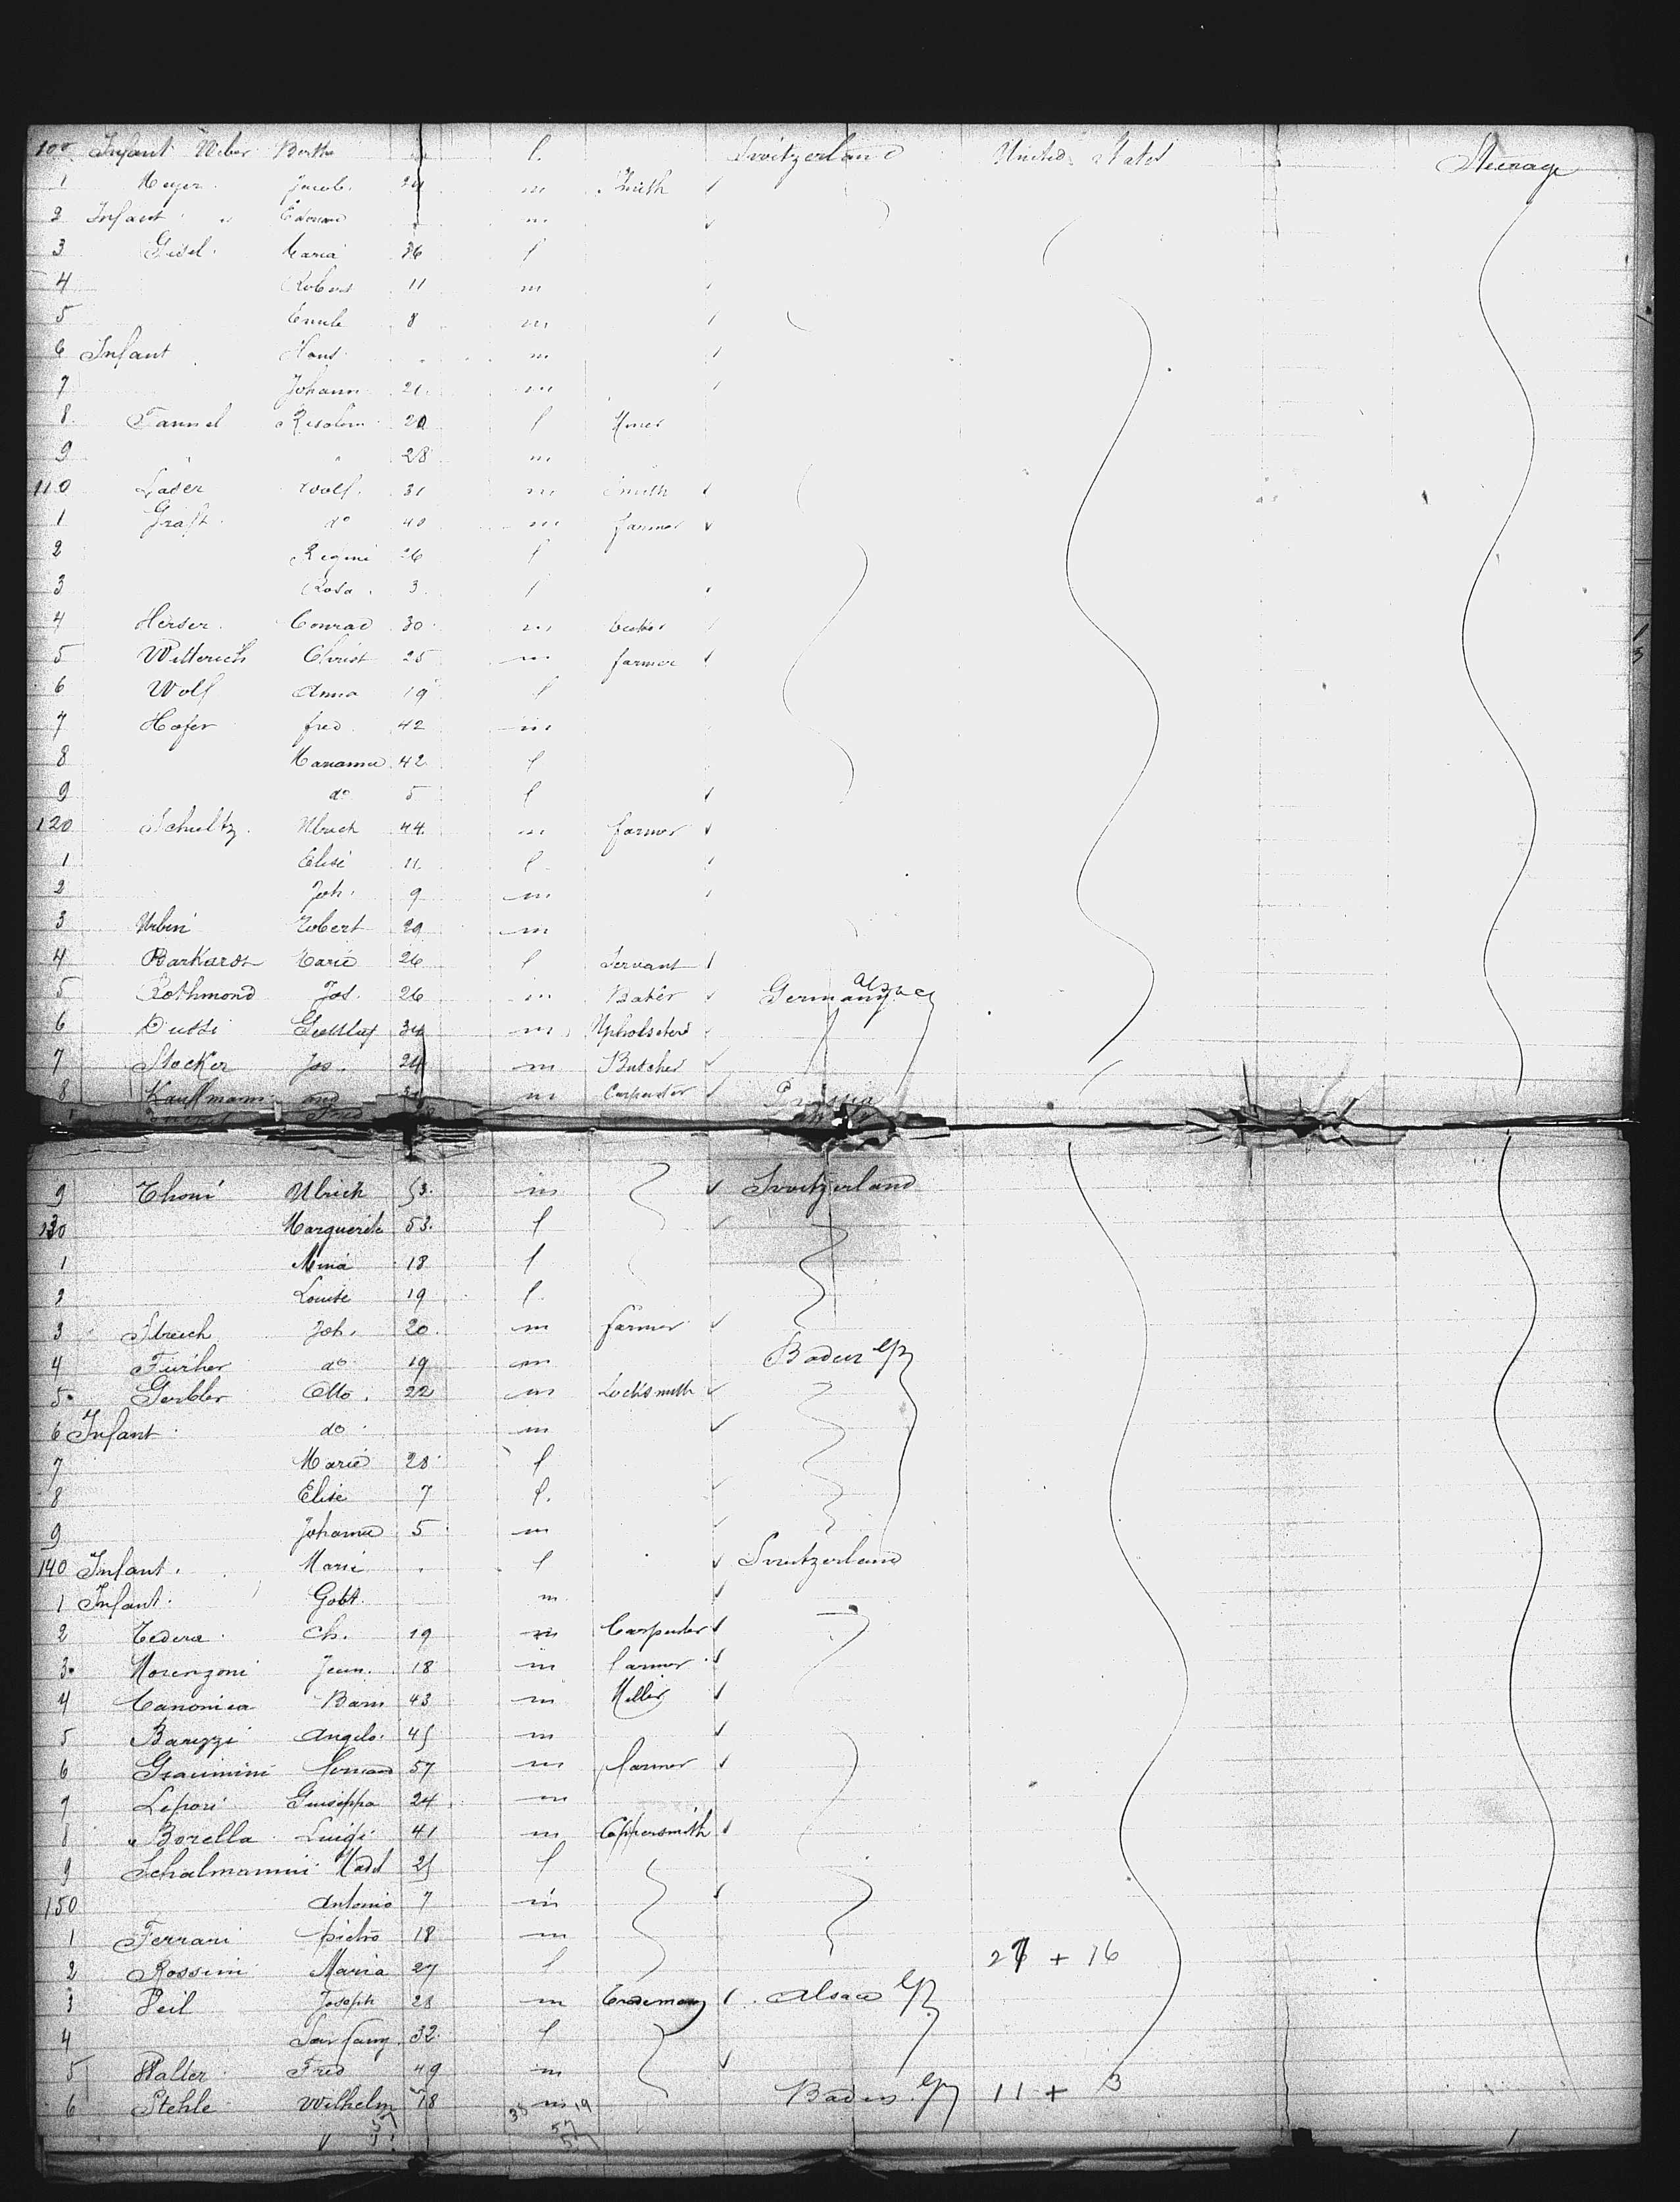 100 Infant Weber Bertha f. Switzerland United States Steerage
1 Meyer Jacob 24 m Smith
2 Infant " Edouard m
3 Gisel Maria 36 f
4 Robert 11 m
5 Emile 8 m
6 Infant Hans m
7 Johann 21 m
8 Fannel 20 f
9 " " 28 m
110 Lader Wolf 31 m Smith
1 Graft do 40 m farmer
2 Regini 26 f
3 Rosa 3 f
4 Herser Conrad 30 m
5 Witterich Christ 25 m farmer
6 Wolf Anna 19 f
7 Hofer fred 42 m
8 Marianne 42 f
9 do 5 f
120 Schultz Ulrich 44 m farmer
1 Elise 11 f
2 Joh. 9 m
3 Urbin Robert 29 m
4 Barkardt Marie 26 f Servant
5 Rothmond Jos. 26 m Baker Germany Alsace
6 Dussi Gustav 34 m Upholsterer
7 Stocker Jos. 24 m Butcher
8 Kauffmann and m Carpenter Prussia
Fred
9 Thoni Ulrich 53 m Switzerland
130 Marguerite 53 f
1 Mina 18 f
2 Louise 19 f
3 Streich Joh. 20 m farmer
4 Further do 19 m Baden
5 Gerbler Otto 22 m Locksmith
6 Infant do m
7 Marie 28 f
8 Elise 7 f.
9 Johanne 5 m
140 Infant Marie f Switzerland
1 Infant Gobt m
2 Tedera Ch. 19 m Carpenter
3 Morenzoni Jean 18 m farmer
4 Canonica Barn 43 m Miller
5 Baruzzi Angelo 45 m
6 Graimini 57 m farmer
7 Lepori Guiseppa 24 m
8 Borella Luigi 41 m Coppersmith
9 Schalmannini Mad 25 f
150 Antonio 7 m
1 Ferrari pietro 18 m
2 Rossini Maria 27 f 27 + 16
3 Peil Joseph 28 m Alsace
4 32 f
5 Walter Fred 49 m
6 Stehle Wilhelm 18 m Baden 11 + 3
38 19
57